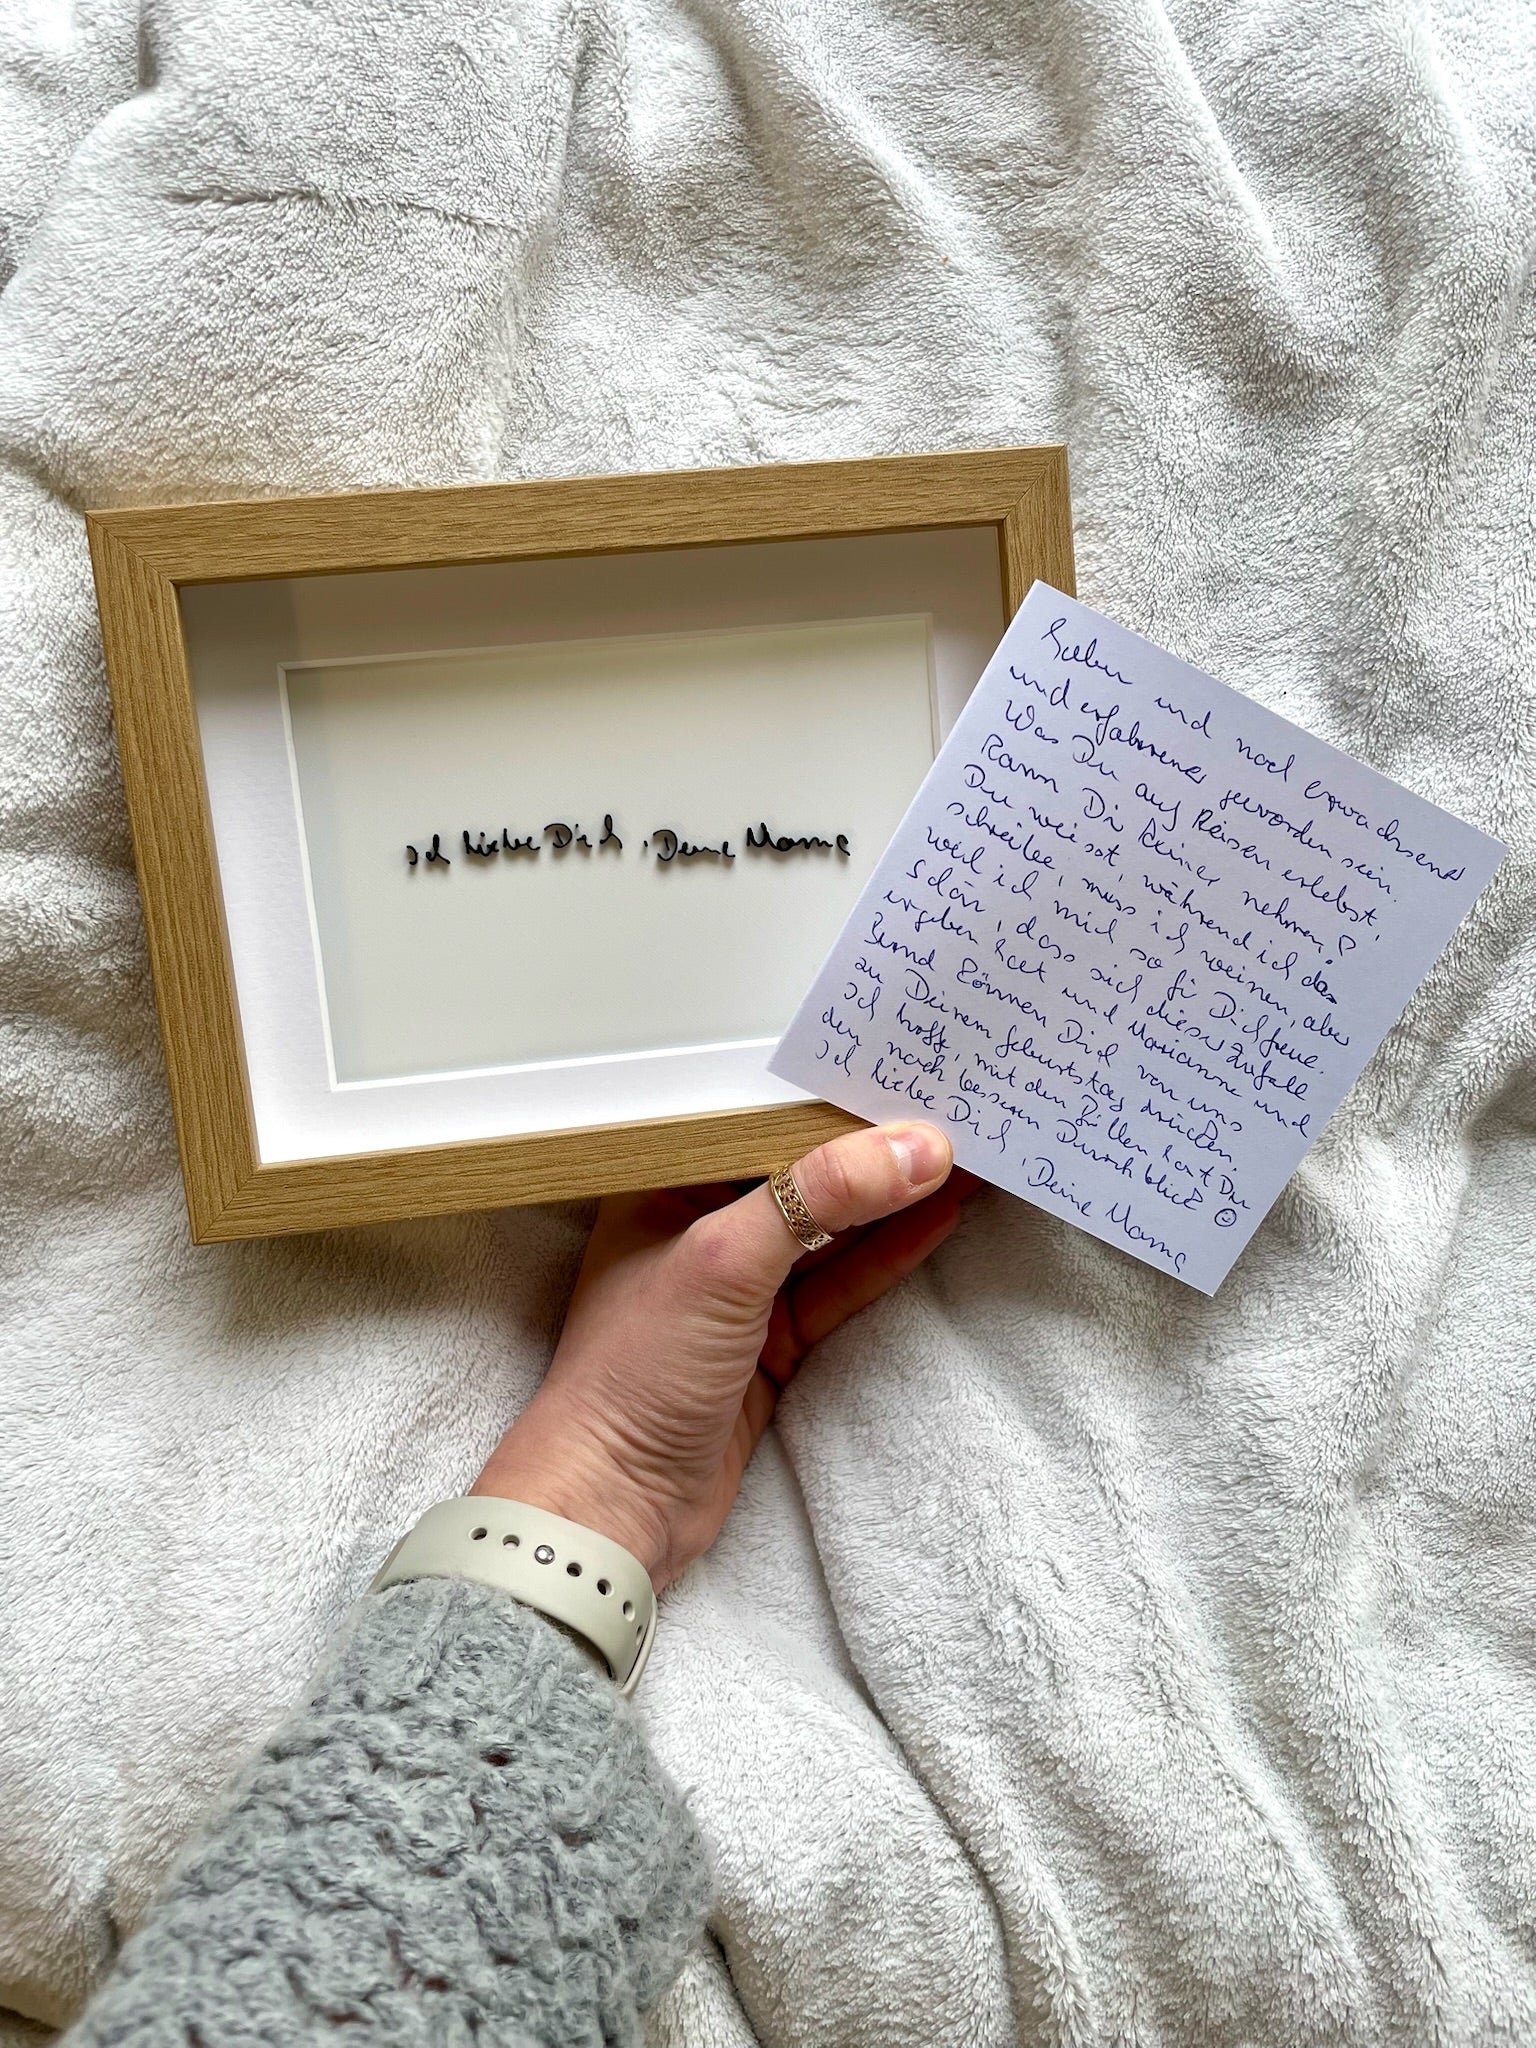 Ich liebe Dich, Deine Mama
haben und noch erwachsener
und erfahrener geworden sein.
Was Du auf Reisen erlebst,
kann Dir keiner nehmen!
Du weisst, während ich das
schreibe, muss ich weinen, aber
weil ich mich so für Dich freue.
Schön, dass sich dieser Zufall
ergeben hat und Marianne und
Bernd können Dich von uns
zu Deinem Geburtstag drücken.
Ich hoffe, mit den Brillen hast Du
den noch besseren Durchblick ☺
Ich liebe Dich, Deine Mama